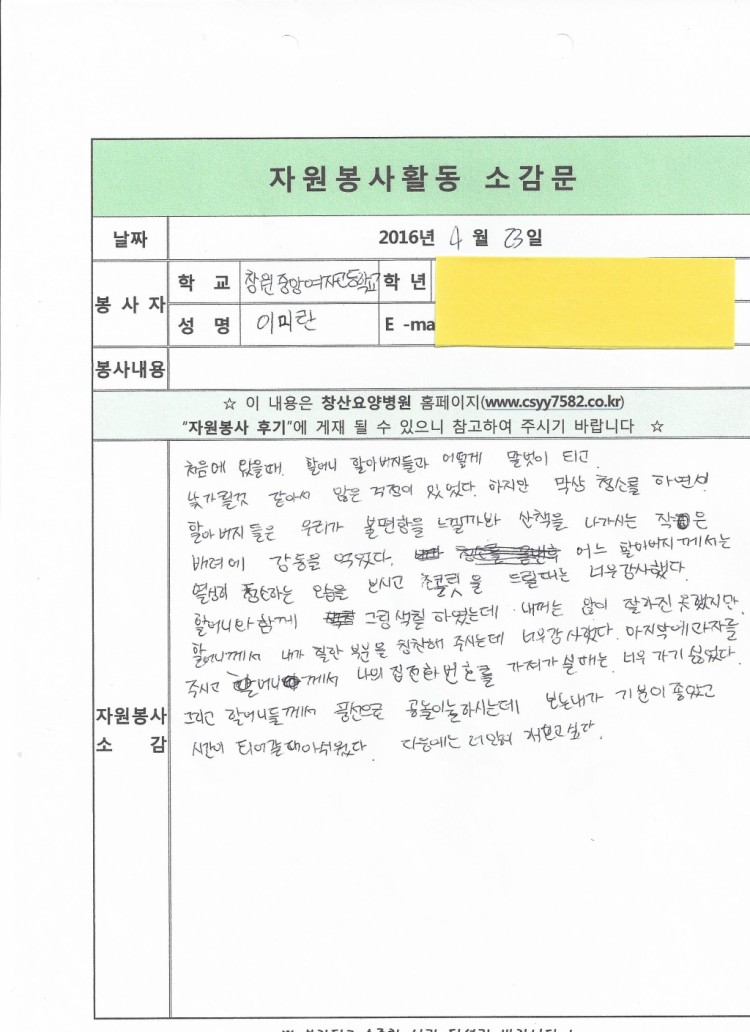 자원봉사활동 소감문
날짜 2016년 4 월 23일
봉 사 자
학 교 창원중앙여자고등학교 학 년
성 명 이미란 E -ma
봉사내용
☆ 이 내용은 창산요양병원 홈페이지(www.csyy7582.co.kr)
"자원봉사 후기"에 게재 될 수 있으니 참고하여 주시기 바랍니다 ☆
자원봉사
소 감
처음에 왔을때. 할머니 할아버지들과 어떻게 말벗이 되고.
낯가릴것 같아서 많은 걱정이 있었다. 하지만 막상 청소를 하면서
할아버지들은 우리가 불편함을 느낄까봐 산책을 나가시는 작은
배려에 감동을 먹었다. 어느 할아버지께서는
열심히 청소하는 모습을 보시고 초콜릿을 드릴때는 너무감사했다.
할머니와 함께 그림색칠 하였는데. 내꺼는 많이 잘하진 못했지만.
할머니께서 내가 칠한 부분을 칭찬해 주시는데 너무감사했다. 마지막에과자를
주시고 할머니께서 나의 집전화번호를 가져가실때는. 너무 가기 싫었다.
그리고 할머니들께서 풍선으로 공놀이놀하시는데 보는내가 기분이좋았고
시간이 되어갈때아쉬웠다. 다음에는 더 하고싶다.